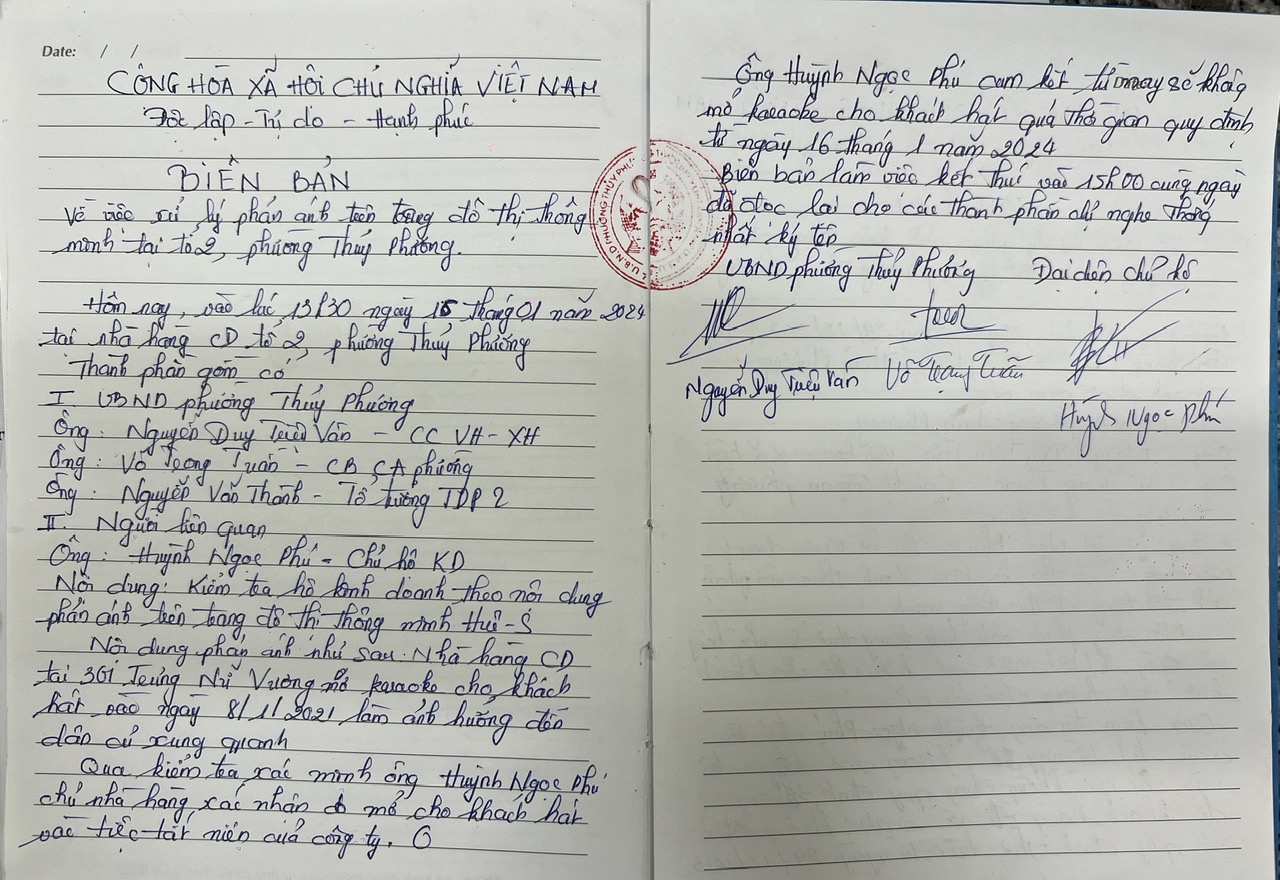 Date: / /
CÔNG HÒA XÃ HÔI CHỦ NGHĨA VIỆT NAM
Độc lập - Tự do - Hạnh phúc
BIÊN BẢN
Về việc xử lý phản ánh trên trang đô thị thông
minh tại tổ 2, phường Thủy Phương.
Hôm nay, vào lúc 13h30 ngày 15 tháng 01 năm 2024
tại nhà hàng CD tổ 2, phường Thủy Phương
Thành phần gồm có
I UBND phường Thủy Phương
Ông: Nguyễn Duy Triều Vân - CC VH - XH
Ông: Võ Trọng Tuấn - CB CA phường
Ông: Nguyễn Văn Thành - Tổ trưởng TDP 2
II. Người liên quan
Ông: Huỳnh Ngọc Phú - Chủ hộ KD
Nội dung: Kiểm tra hộ kinh doanh theo nội dung
phản ánh trên trang đô thị thông minh Huế-S
Nội dung phản ánh như sau: Nhà hàng CD
tại 361 Trưng Nữ Vương mở karaoke cho khách
hát vào ngày 8/1/2021 làm ảnh hưởng đến
dân cư xung quanh
Qua kiểm tra xác minh ông Huỳnh Ngọc Phú
chủ nhà hàng xác nhận có mở cho khách hát
vào tiệc tất niên của công ty.
Ông Huỳnh Ngọc Phú cam kết từ nay sẽ không
mở karaoke cho khách hát quá thời gian quy định
từ ngày 16 tháng 1 năm 2024
Biên bản làm việc kết thúc vào 15h00 cùng ngày
đã đọc lại cho các thành phần dự nghe thống
nhất ký tên
UBND phường Thủy Phương Đại diện chủ hộ
Nguyễn Duy Triều Vân Võ Trọng Tuấn
Huỳnh Ngọc Phú